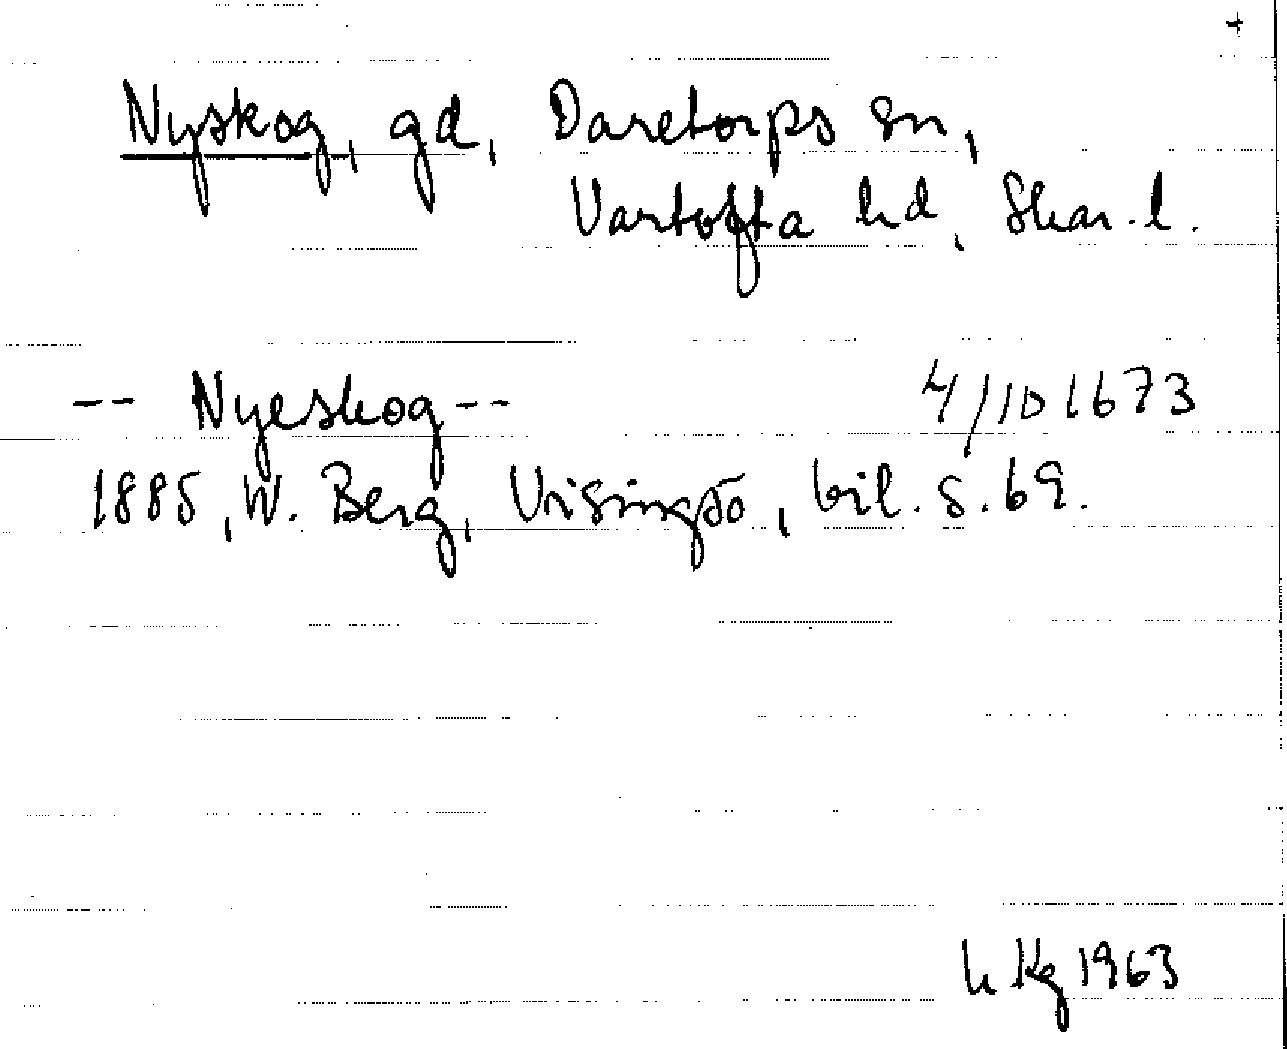 +
Nyskog, gd, Daretorps sn,
Vartofta hd, Skar. l.
-- Nyeskog -- 4/10 1673
1885, W. Berg, Visingsö, bil. s. 69.
h Kg 1963